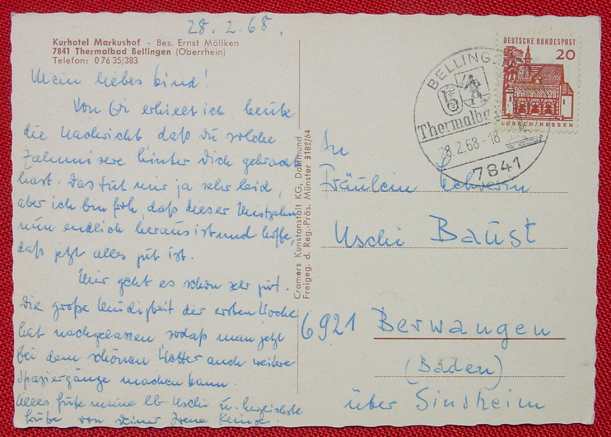 28.2.68.
Kurhotel Markushof - Bes. Ernst Mölken
7841 Thermalbad Bellingen (Oberrhein)
Telefon: 0 76 35/383
Mein liebes Kind!
Von Gi erhielt ich heute
die Nachricht daß du solche
Zahnmisere hinter Dich gebracht
hast. Das tut mir ja sehr leid,
aber ich bin froh, daß dieser
nun endlich heraus ist und hoffe,
daß jetzt alles gut ist.
Mir geht es schon sehr gut.
Die große Müdigkeit der ersten Woche
hat nachgelassen sodaß man jetzt
bei dem schönen Wetter auch weitere
Spaziergänge machen kann.
Alles Gute meine lb Uschi u. herzlichste
Grüße von Deiner
Cramers Kunstanstalt KG, Dortmund
Freigeg. d. Reg.-Präs. Münster 5182/64
DEUTSCHE BUNDESPOST
20
LORSCH/HESSEN
BELLINGEN
Thermalbad
28.2.68-18
7841
An
Fräulein
Uschi Baust
6921 Berwangen
(Baden)
über Sinsheim